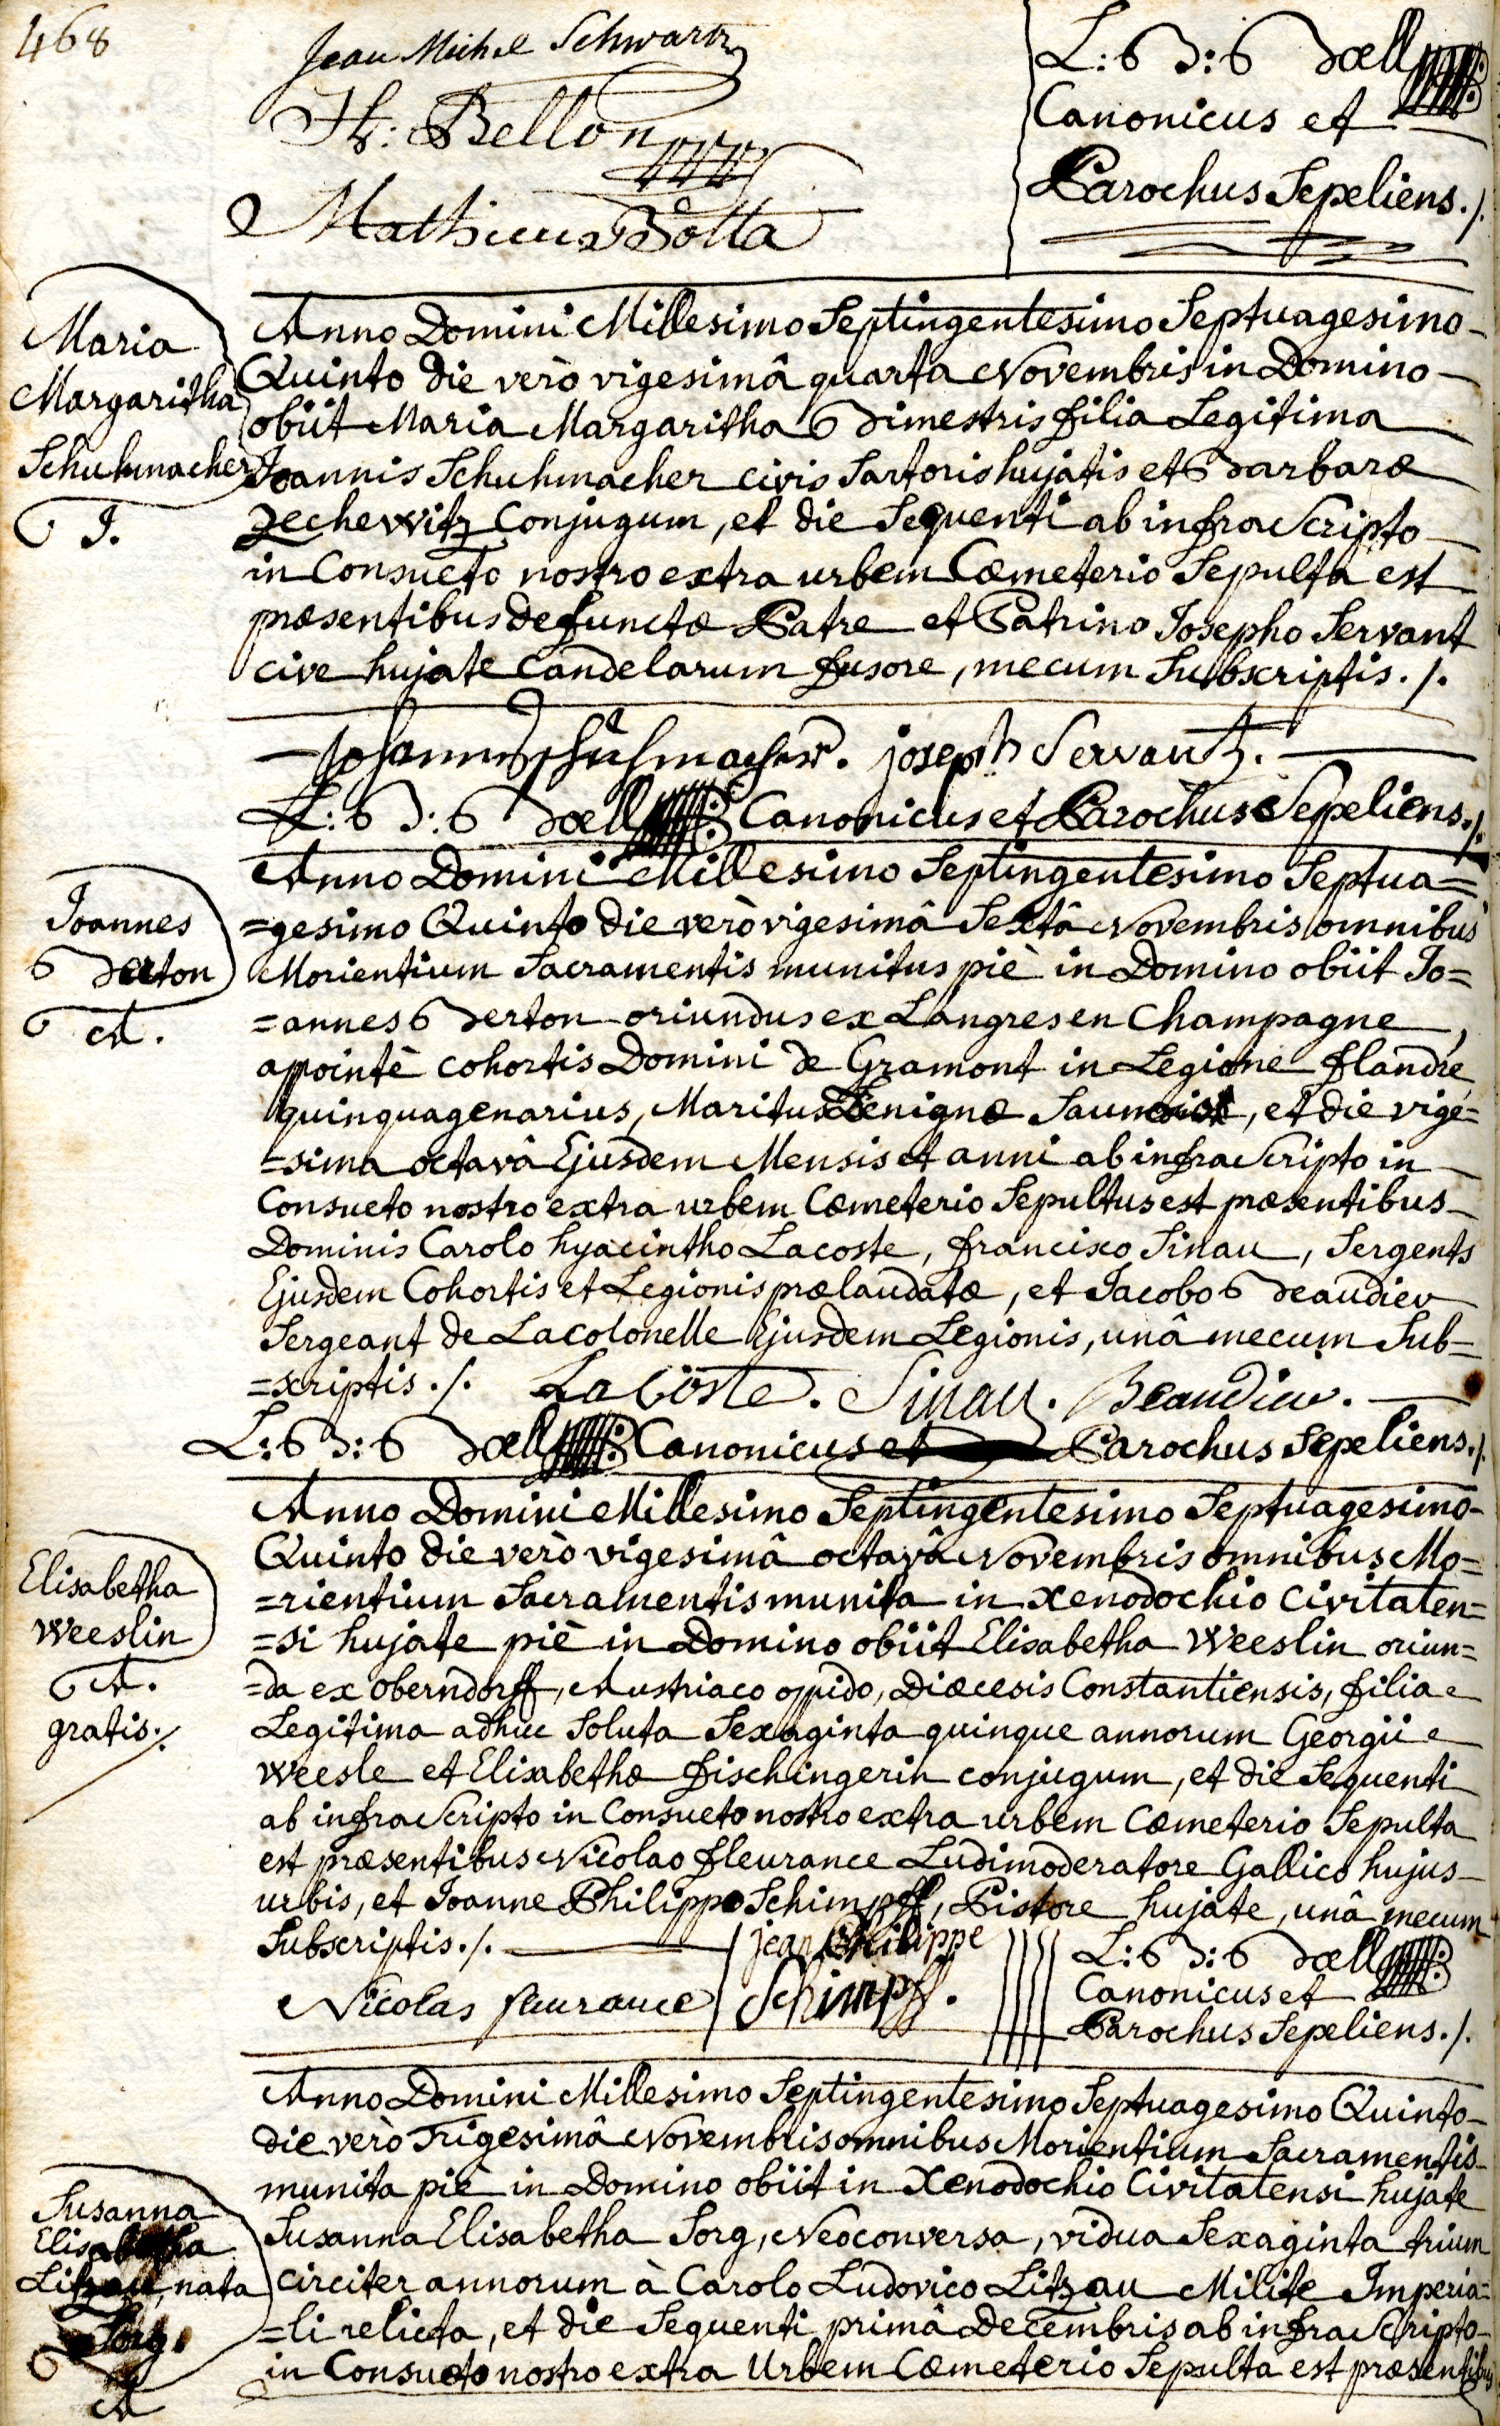 468
Jean Michel Schwartz
H: Bellon
Mathieus Botta
L: B: Boell
Canonicus et
Parochus Sepeliens./.
Maria
Margaritha
Schuhmacher
I.
Anno Domini Millesimo Septingentesimo Septuagesimo
Quinto die verò vigesimâ quarta Novembris in Domino
obiit Maria Margaritha Bimestris filia Legitima
Joannis Schuhmacher civis Sartoris hujatis et Barbaræ
Zechewitz Conjugum, et die Sequenti ab infra Scripto
in Consueto nostro extra urbem Cœmeterio Sepulta est
præsentibus defunctæ Patre et Patrino Josepho Servant
cive hujate candelarum fusore, mecum Subscriptis./.
Johannes schuhmacher. joseph Servant.
L: B: Boell Canonicus et Parochus Sepeliens./.
Joannes
Berton
A.
Anno Domini Millesimo Septingentesimo Septua=
=gesimo Quinto die verò vigesimâ Sextâ Novembris omnibus
Morientium Sacramentis munitus piè in Domino obiit Jo=
=annes Berton oriundus ex Langres en Champagne,
apointè cohortis Domini de Gramont in Legione flandre,
quinquagenarius, Maritus Benignæ, et die vige=
=sima octavâ Ejusdem Mensis et anni ab infra Scripto in
Consueto nostro extra urbem Cœmeterio Sepultus est præsentibus
Dominis Carolo hyacintho Lacoste, francisco Sinau, Sergents
Ejusdem Cohortis et Legionis prælaudatæ, et Jacobo Beaudieu
Sergeant de Lacolonelle Ejusdem Legionis, unâ mecum Sub=
=scriptis./. La Coste. Sinau. Beaudieu.
L: B: Boell Canonicus et Parochus Sepeliens./.
Elisabetha
Weeslin
A.
gratis./.
Anno Domini Millesimo Septingentesimo Septuagesimo
Quinto die verò vigesimâ octavâ Novembris omnibus Mo=
=rientium Sacramentis munita in Xenodochio Civitaten=
=si hujate piè in Domino obiit Elisabetha Weeslin oriun=
=da ex oberndorff, Austriaco oppido, Diœcesis Constantiensis, filia
Legitima adhuc Soluta Sexaginta quinque annorum Georgii
Weesle et Elisabethæ fischingerin conjugum, et die Sequenti
ab infra Scripto in Consueto nostro extra urbem Cœmeterio Sepulta
est præsentibus Nicolao fleurance Ludimoderatore Gallico hujus
urbis, et Joanne Philippo Schimpff, Pistore hujate, unâ mecum
Subscriptis./.
Nicolas fleurance
jean Philippe
Schimpff.
L: B: Boell
Canonicus et
Parochus Sepeliens./.
Susanna
Elisabetha
Litzau, nata
Sorg.
A
Anno Domini Millesimo Septingentesimo Septuagesimo Quinto
die verò Trigesimâ Novembris omnibus Morientium Sacramentis
munita piè in Domino obiit in Xenodochio Civitatensi hujate
Susanna Elisabetha Sorg, Neoconversa, vidua Sexaginta trium
circiter annorum à Carolo Ludovico Litzau Milite Imperia=
=li relicta, et die Sequenti primâ Decembris ab infra Scripto
in Consueto nostro extra Urbem Cœmeterio Sepulta est præsentibus